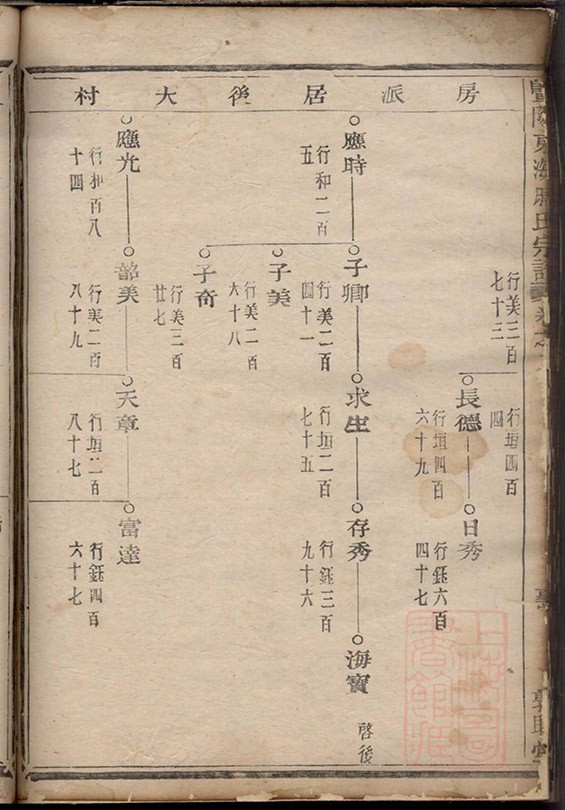 房派居後大村
行美三百
七十三
行垣四百
四
長德
行垣四百
六十九
日秀
行鈺六百
四十七
應時
行和二百
五
子卿
行美二百
四十一
求生
行垣二百
七十五
存秀
行鈺三百
九十六
海寶
啓後
子美
行美二百
六十八
子奇
行美三百
廿七
應光
行和百八
十四
韶美
行美二百
八十九
天章
行垣二百
八十七
富達
行鈺四百
六十七